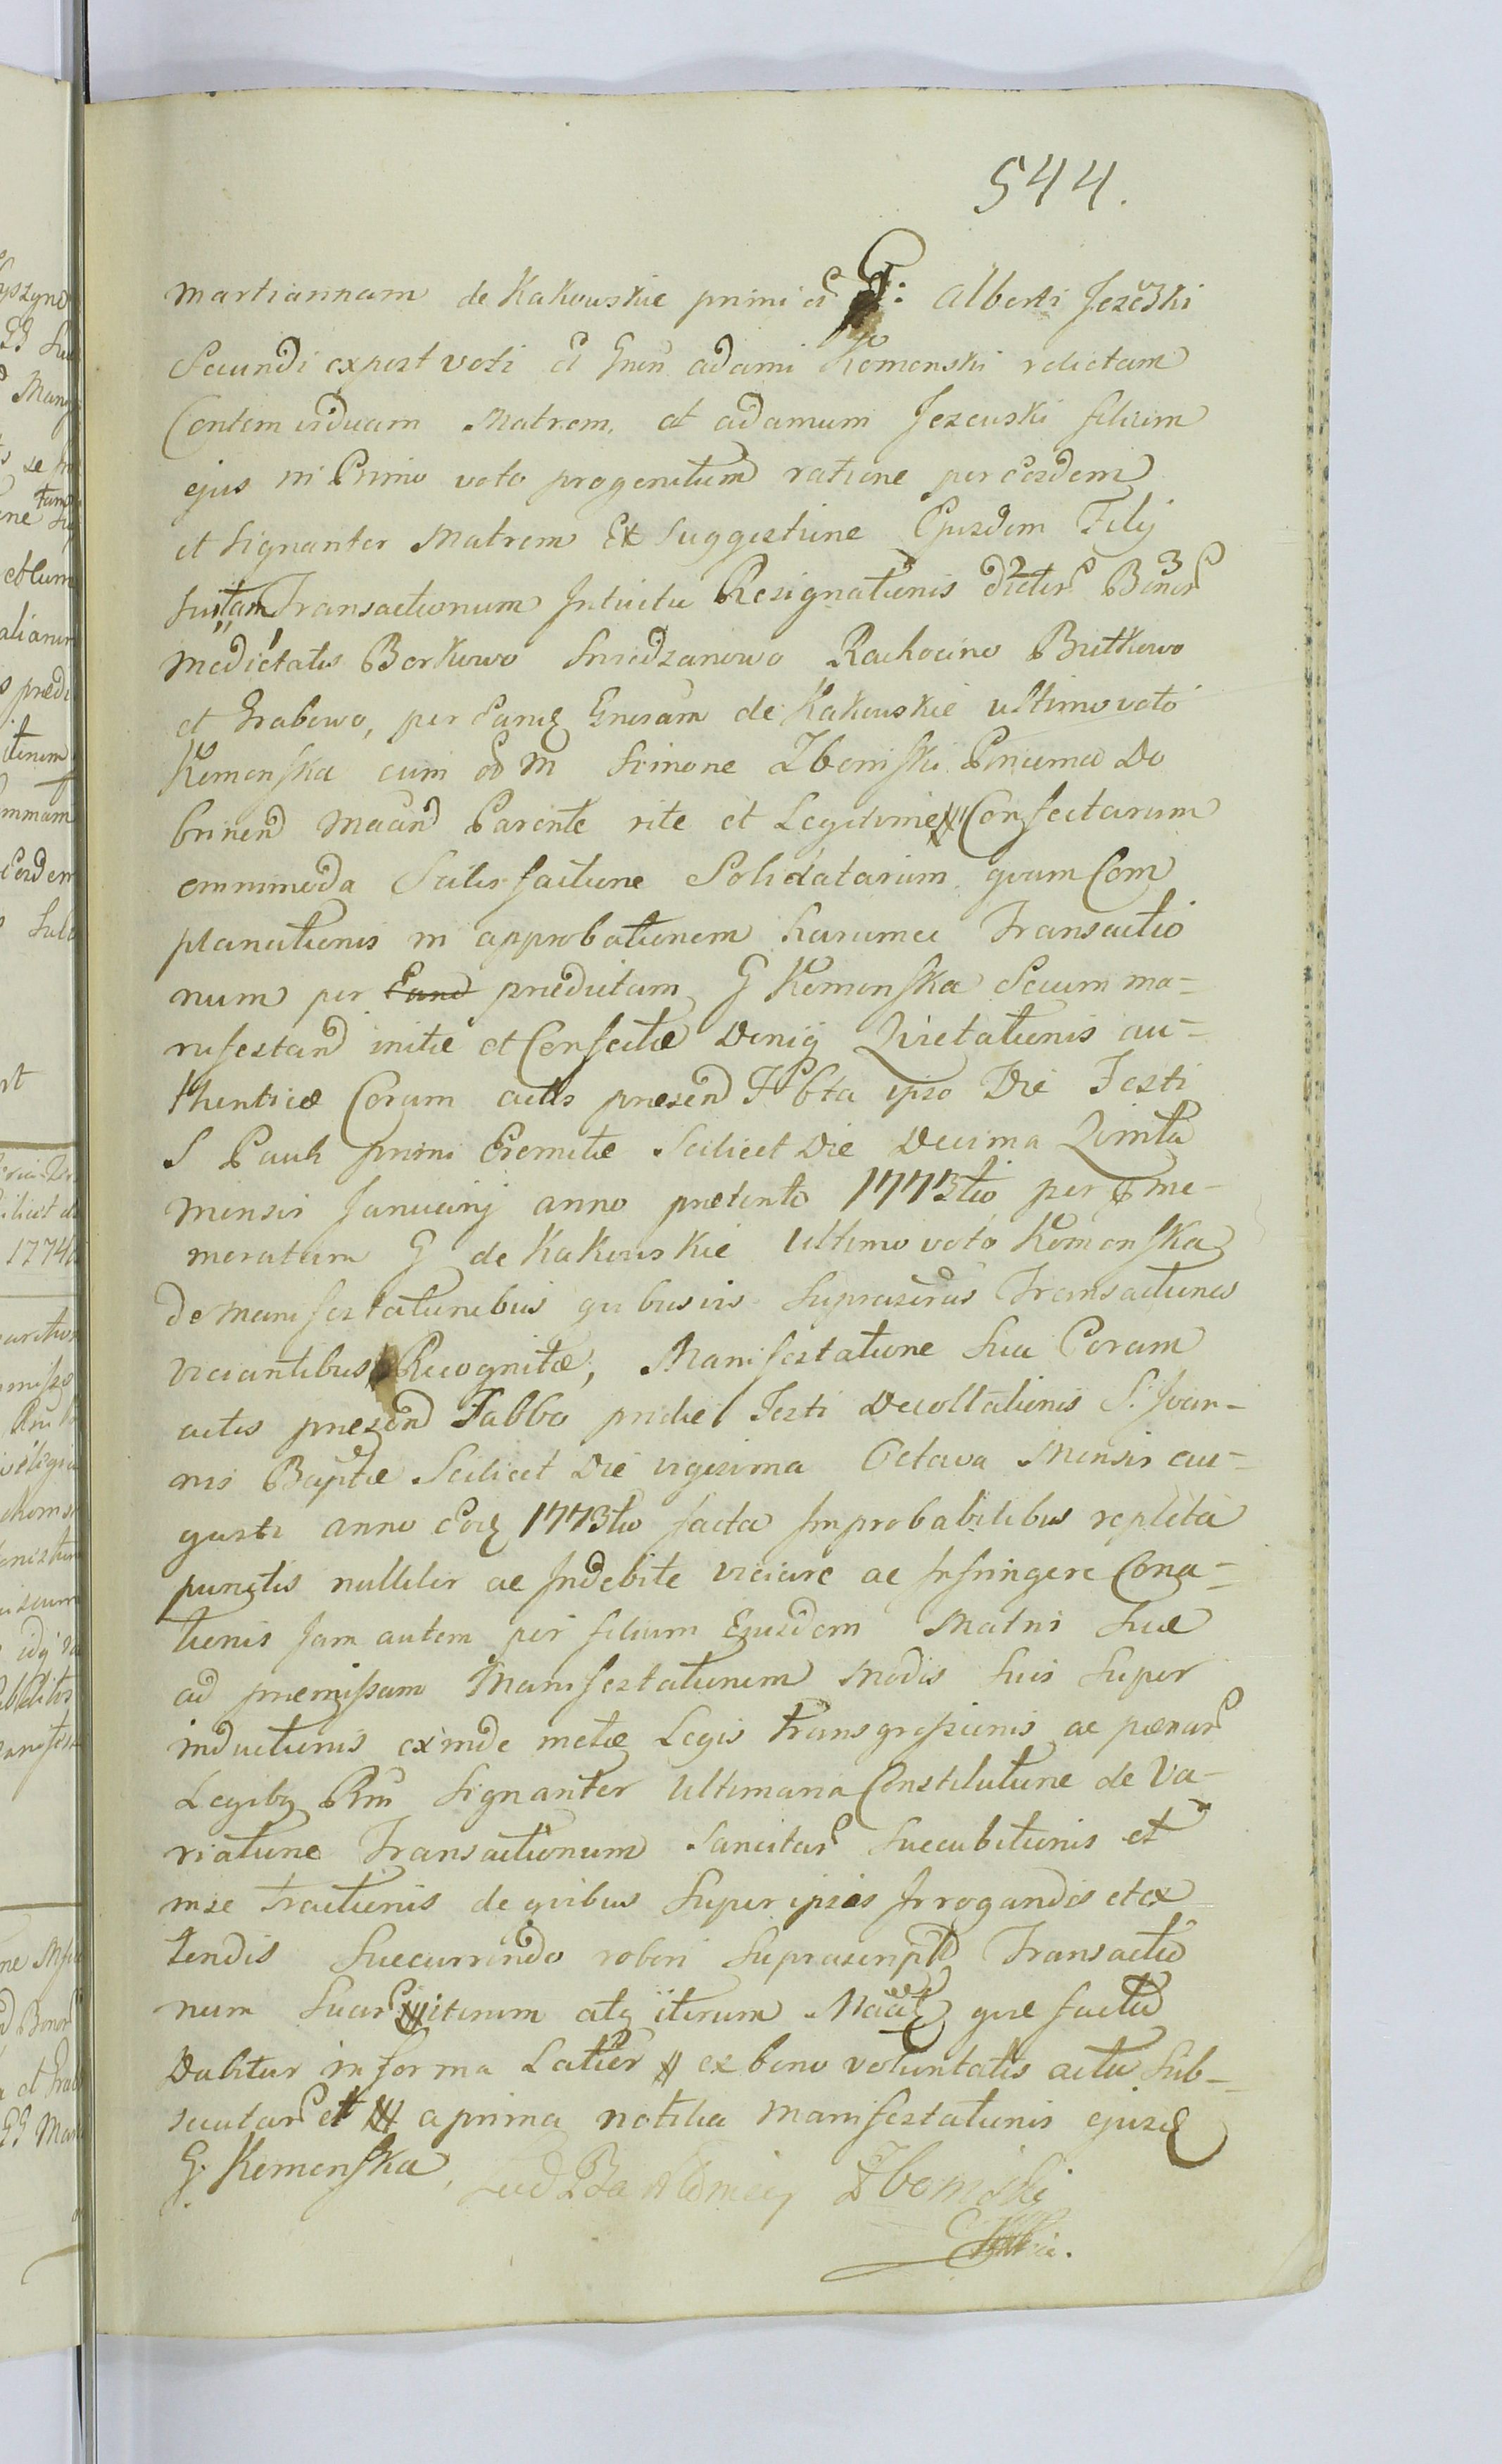 544.
Martiannam de Kakowskie primi et G: Alberti Jeżewski
Secundi expost voti et Gnen Adami Komenski relictam
Contem viduam Matrem, et Adamum Jezewski filium
ejus in Primo voto progenitum ratione per eosdem
et Signanter Matrem Ex Suggestione Ejusdem Filij
suitam Transactionum Intuitu Resignationis dictor Bonor
medietatis Borkowo Sniedzanowo Rachocino Brutkowo
et Grabowo, per eand Gnosam de Kakowskie ultimo voto
Komenska cum M Simone Zboinski Pincerna Do
brinen Maand Parente rite et Legitime Confectarum
omnimoda Satisfactione Solidatarum quam Com
planationis in approbationem harumce Transactio
num per Eand predictam G Komenska Secum ma-
nifestand initæ et Confectæ Deniq Quietationis au-
thenticæ Coram actis presen Fbta ipso Die Festi
S Pauli primi Eremitæ Scilicet Die Decima Quinta
Mensis Januarij anno pretento 1773tio per me-
moratam G de Kakowskie Ultimo voto Komenska
de manifestationibus quibusvis Suprascras Transactiones
viciantibus Recognitæ, Manifestatione Sua Coram
actis presen Sabbo pridie Festi Decollationis S. Joan-
nis Baptæ Scilicet Die vigesima Octava Mensis au-
gusti anno eod 1773tio facta Improbabilibus repleta
punctis nulliter ac Indebite viciare ac Infringere Cona-
tionis Jam autem per filium Ejusdem Matri Suæ
ad premissam Manifestationem Modis Suis Super
inductionis exinde metæ Legis transgressionis ac pænar
Legibq Rni Signanter Ultimaria Constitutione de Va-
riatione Transactionum Sancitar Succubitionis et
mse tractionis de quibus Super ipsos Irrogandis et ex
tendis Succurrendo robori Suprascript Transactio
num Suar iterum atq iterum Maat quæ facta
Dabitur in forma Latior ex bono voluntatis actu Sub-
secutar et a prima notitia Manifestationis ejusd
G. Komenska,
Zboinski